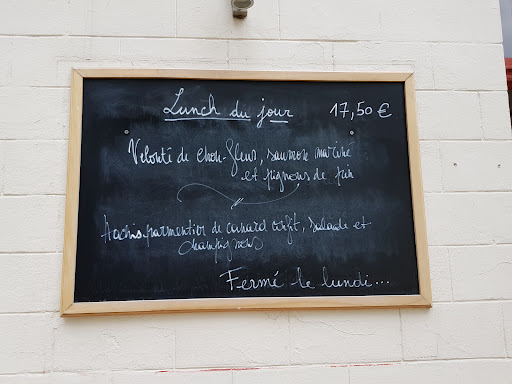 Lunch du jour 17,50 €
Velouté de chou-fleur, saumon mariné
et pignons de pin
Hachis parmentier de canard confit, salade et
champignons
Fermé le lundi...